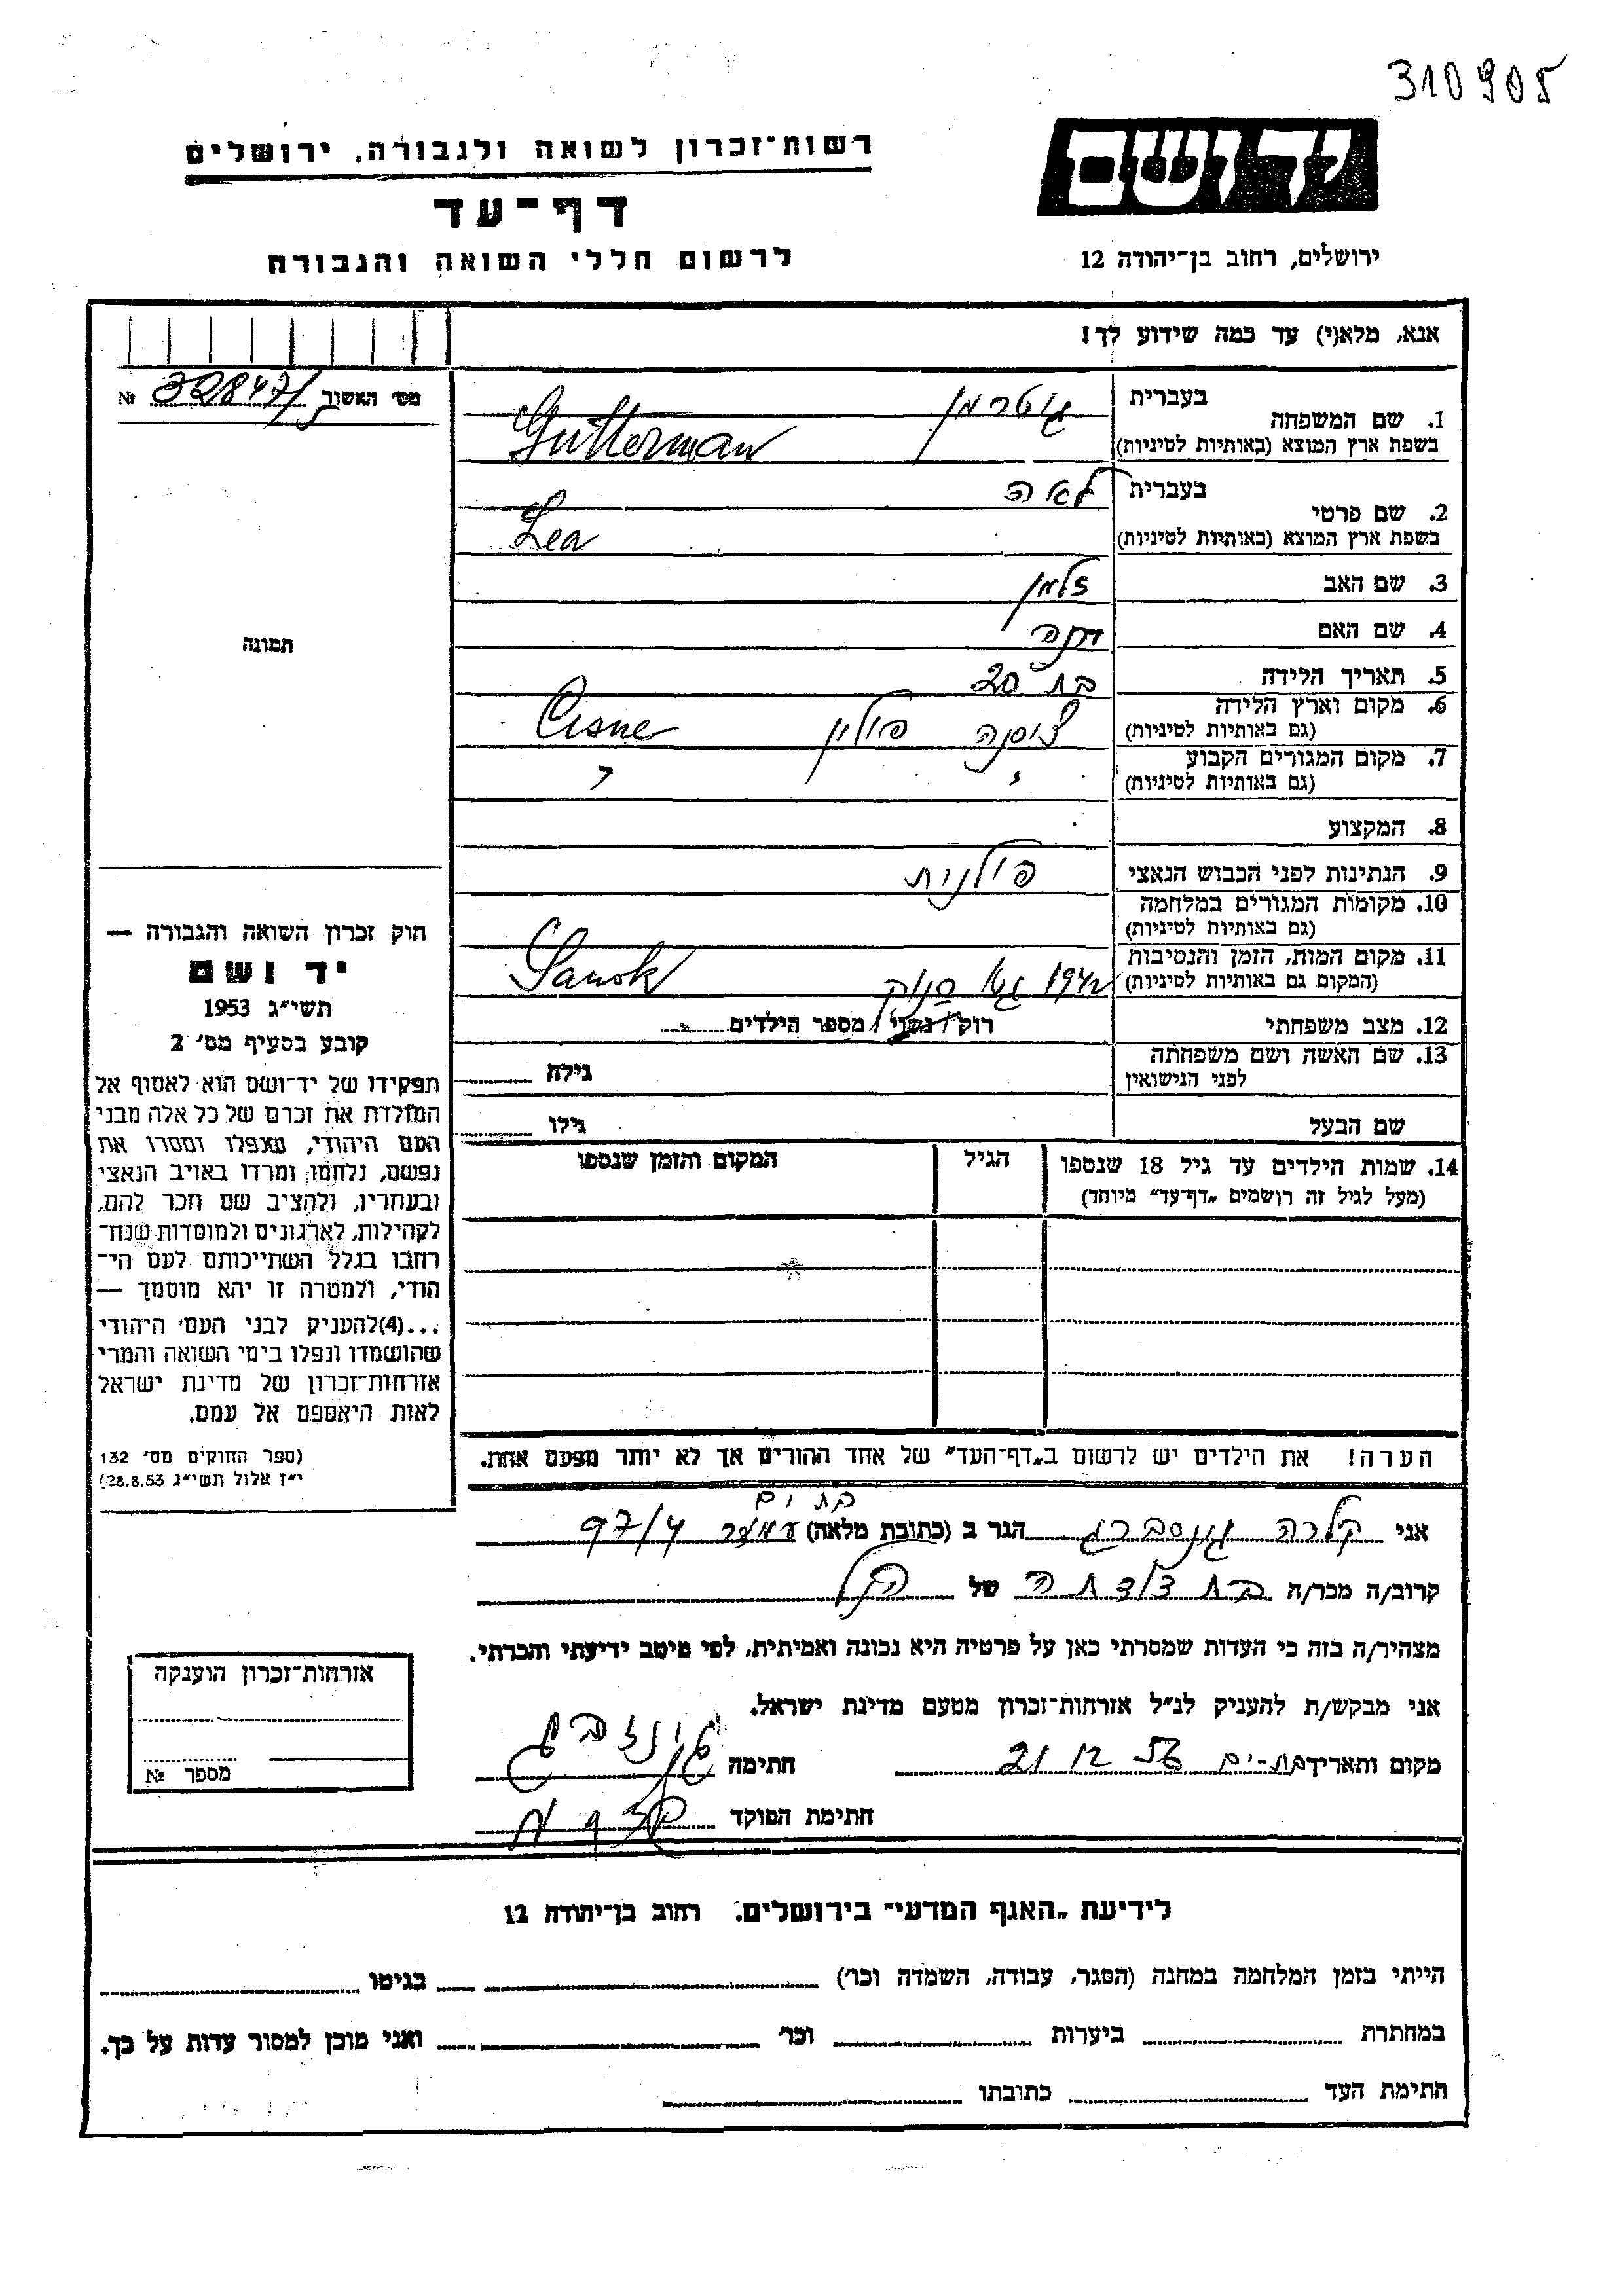 310905
יד ושם
רשות־זכרון לשואה ולגבורה, ירושלים
דף־עד
לרשום חללי השואה והגבורה
ירושלים, רחוב בן־יהודה 12
אנא, מלא(י) עד כמה שידוע לך!
מס׳ האשור 32847/ №
בעברית גוטרמן
1. שם המשפחה
בשפת ארץ המוצא (באותיות לטיניות) Gutterman
בעברית לאה
2. שם פרטי
בשפת ארץ המוצא (באותיות לטיניות) Lea
3. שם האב זלמן
4. שם האם חנה
5. תאריך הלידה בת 20
6. מקום וארץ הלידה
(גם באותיות לטיניות) ציסנה פולין Cisne
7. מקום המגורים הקבוע
(גם באותיות לטיניות)
8. המקצוע
9. הנתינות לפני הכבוש הנאצי פולנית
10. מקומות המגורים במלחמה
(גם באותיות לטיניות)
11. מקום המות, הזמן והנסיבות
(המקום גם באותיות לטיניות) 1942 גטו סנוק Sanok
12. מצב משפחתי רוק/נשוי/ מספר הילדים
13. שם האשה ושם משפחתה
לפני הנישואין גילה
שם הבעל גילו
14. שמות הילדים עד גיל 18 שנספו הגיל המקום והזמן שנספו
(מעל לגיל זה רושמים „דף־עד״ מיוחד)
הערה! את הילדים יש לרשום ב„דף־העד״ של אחד ההורים אך לא יותר מפעם אחת.
תמונה
חוק זכרון השואה והגבורה —
יד ושם
תשי״ג 1953
קובע בסעיף מס׳ 2
תפקידו של יד־ושם הוא לאסוף אל
המולדת את זכרם של כל אלה מבני
העם היהודי, שנפלו ומסרו את
נפשם, נלחמו ומרדו באויב הנאצי
ובעוזריו, ולהציב שם וזכר להם,
לקהילות, לארגונים ולמוסדות שנח־
רבו בגלל השתייכותם לעם הי־
הודי, ולמטרה זו יהא מוסמך —
...(4)להעניק לבני העם היהודי
שהושמדו ונפלו בימי השואה והמרי
אזרחות־זכרון של מדינת ישראל
לאות היאספם אל עמם.
(ספר החוקים מס׳ 132
י״ז אלול תשי״ג 28.8.53)
בת ים
אני קלרה גונסברג הגר ב (כתובת מלאה) 97/4
קרוב/ה מכר/ה בת דודתה של הנ״ל
מצהיר/ה בזה כי העדות שמסרתי כאן על פרטיה היא נכונה ואמיתית, לפי מיטב ידיעתי והכרתי.
אני מבקש/ת להעניק לנ״ל אזרחות־זכרון מטעם מדינת ישראל.
מקום ותאריך בת-ים 21 12 חתימה
חתימת הפוקד
אזרחות־זכרון הוענקה
מספר №
לידיעת „האגף המדעי״ בירושלים. רחוב בן־יהודה 12
הייתי בזמן המלחמה במחנה (הסגר, עבודה, השמדה וכו׳) בגיטו
במחתרת ביערות וכו׳ ואני מוכן למסור עדות על כך.
חתימת העד כתובתו